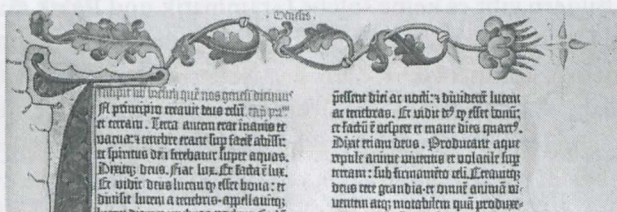 Genesis
Incipit lib bresith quē nos genesi dicimus
In principio creauit deus celū cap. pmū
et terram. Terra autem erat inanis et
vacua: ⁊ tenebre erant sup faciē abissi:
et spiritus dn̄i ferebatur super aquas.
Dixitqꝫ deus. Fiat lux. Et facta ē lux.
Et vidit deus lucem ꝙ esset bona: et
diuisit lucem a tenebris·appellauitqꝫ
pessent diei ac nocti: ⁊ diuiderēt lucem
ac tenebras. Et vidit deꝰ ꝙ esset bonū:
et factū ē vespere et mane dies quartꝰ.
Dixit etiam deus. Producant aque
reptile anime viuentis et volatile suꝑ
terram: sub firmamēto celi. Creauitqꝫ
deus cete grandia·et omnē animā vi-
uentem atqꝫ motabilem quā produxe-